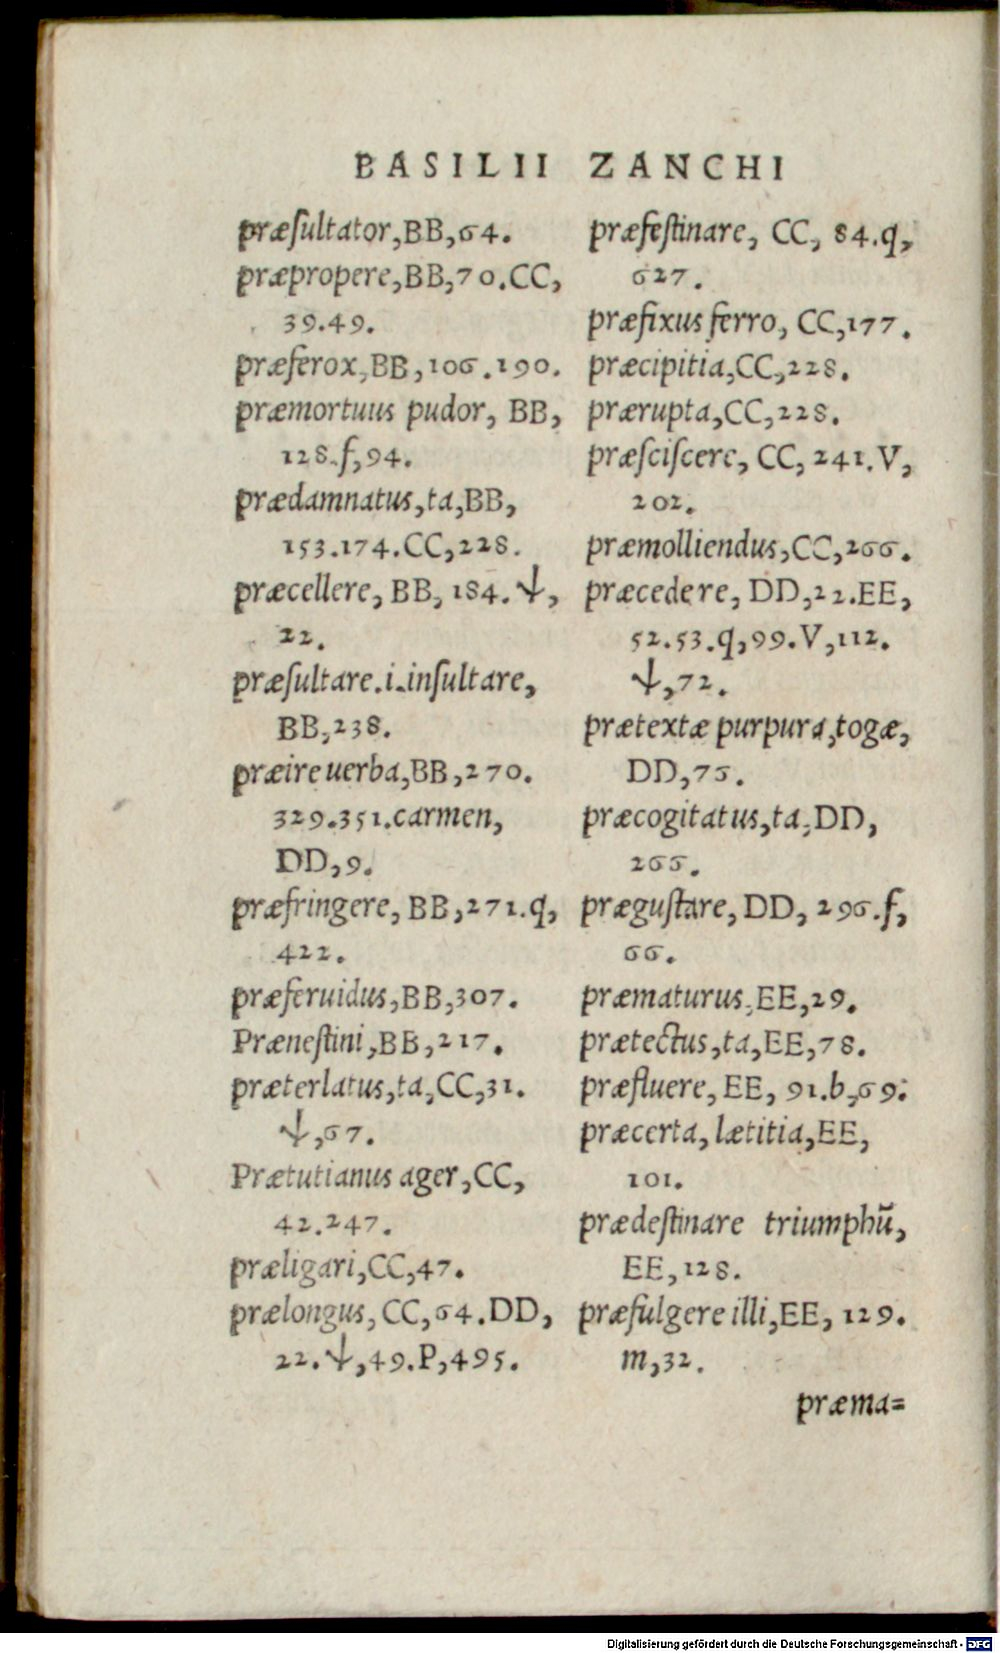 BASILII ZANCHI
præſultator,BB,64.
præpropere,BB,70.CC,
39.49.
præferox,BB,106.190.
præmortuus pudor, BB,
128.ſ,94.
prædamnatus,ta,BB,
153.174.CC,228.
præcellere, BB, 184.ↆ,
22.
præſultare.i.inſultare,
BB,238.
præire uerba,BB,270.
329.351.carmen,
DD,9.
præfringere, BB,271.q,
422.
præferuidus,BB,307.
Præneſtini,BB,217.
præterlatus,ta,CC,31.
ↆ,67.
Prætutianus ager,CC,
42.247.
præligari,CC,47.
prælongus, CC,64.DD,
22.ↆ,49.P,495.
præfeſtinare, CC, 84.q,
627.
præfixus ferro, CC,177.
præcipitia,CC,228.
prærupta,CC,228.
præſciſcere, CC, 241.V,
202.
præmolliendus,CC,266.
præcedere, DD,22.EE,
52.53.q,99.V,112.
ↆ,72.
prætextæ purpura,togæ,
DD,75.
præcogitatus,ta,DD,
266.
præguſtare, DD, 296.ſ,
66.
præmaturus,EE,29.
prætectus,ta,EE,78.
præfluere, EE, 91.b,69.
præcerta, lætitia,EE,
101.
prædeſtinare triumphū,
EE,128.
præfulgere illi,EE, 129.
m,32.
præma=
Digitalisierung gefördert durch die Deutsche Forschungsgemeinschaft - DFG